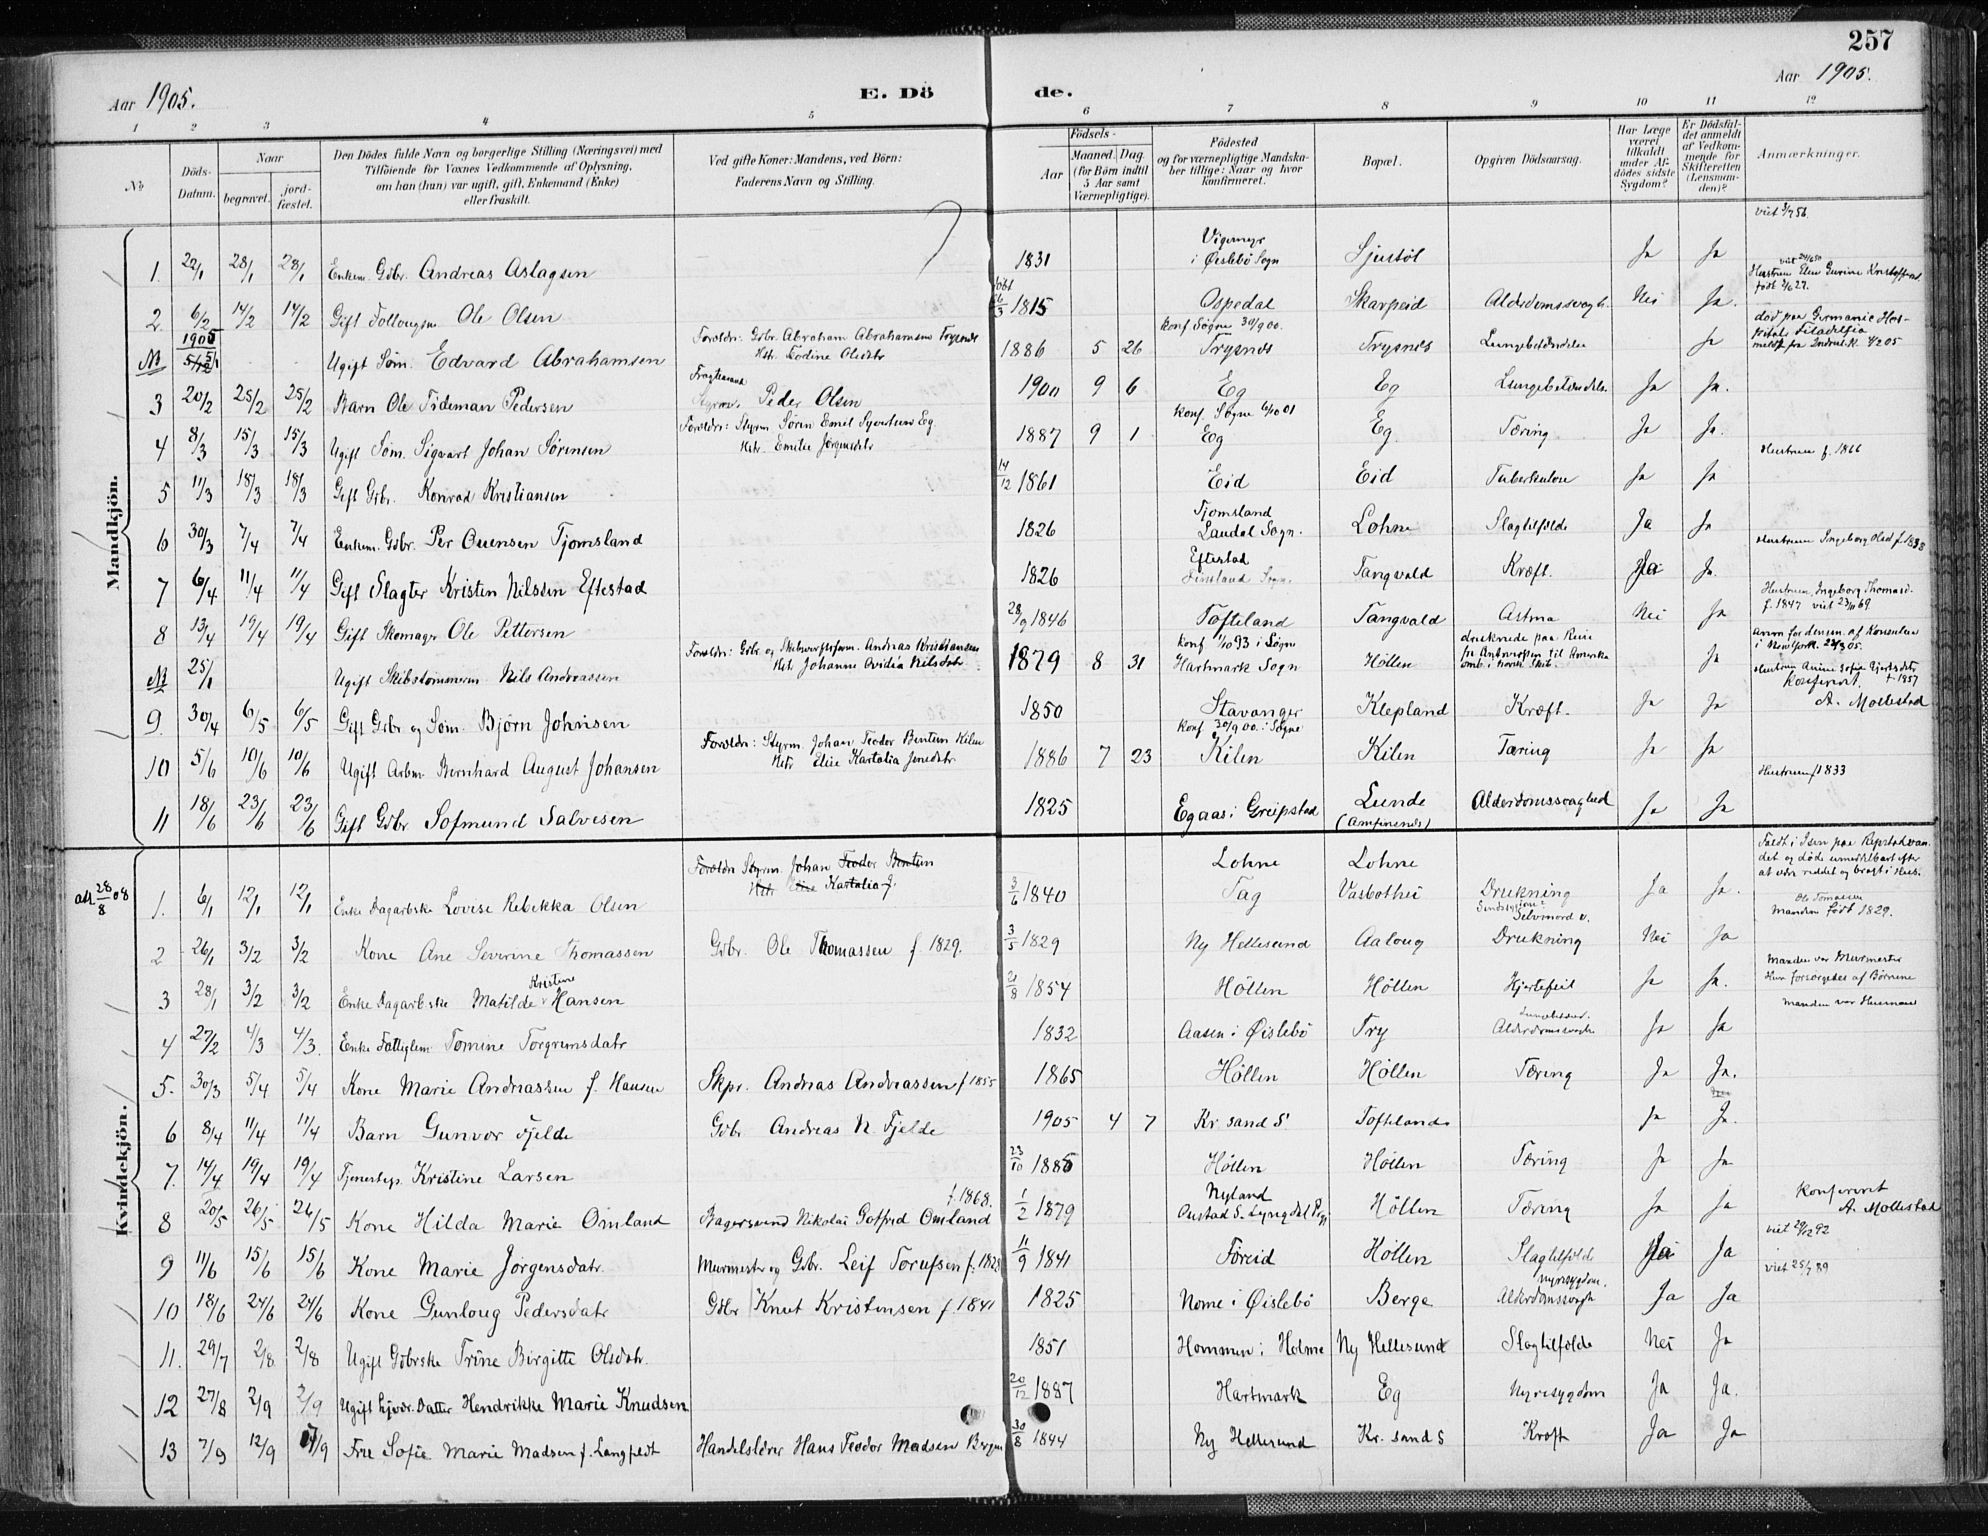 257
Aar 1905.
E. Dö de.
Aar 1905.
1 2 3 4 5 6 7 8 9 10 11 12
No
Döds-Datum.
Naar
begravet.
jord-fæstet.
Den Dödes fulde Navn og borgerlige Stilling (Næringsvei) med
Tilföiende for Voxnes Vedkommende af Oplysning,
om han (hun) var ugift, gift, Enkemand (Enke)
eller fraskilt.
Ved gifte Koner: Mandens, ved Börn:
Faderens Navn og Stilling.
Födsels-
Aar
Maaned. Dag.
(for Börn indtil
5 Aar samt
Værnepligtige).
Födested
og for værnepligtige Mandska-
ber tillige: Naar og hvor
konfirmeret.
Bopæl.
Opgiven Dödsaarsag.
Har Læge
været
tilkaldt
under Af-
dödes sidste
Sygdom?
Er Dödsfal-
det anmeldt
af Vedkom-
mende for
Skifteretten
(Lensman-
den)?
Anmærkninger.
Mandkjön.
1. 22/1 28/1 28/1 Enkem. Gdbr. Andreas Aslagsen 1831 Vigemyr i Øislebö Sogn Sjustöl Ja Ja
2 6/2 14/2 14/2 Gift Ole Olsen 1815 Ospedal Skarpeid Alderdomssvagh. Nei Ja.
1905 5/1 Ugift Söm. Edvard Abrahamsen Foreldr: Gdbr. Abraham Abrahamsen Trysnes 1886 5 26 konf Søgne 30/9 00. Trysnes Trysnes Lungebetændelse Ja
död paa Germania Hospital, Filadelfia
3 20/2 25/2 25/2 Barn Ole Tideman Pedersen Peder Olsen 1900 9 6 Eg Eg Lungebetændelse Ja Ja.
4 8/3 15/3 15/3 Ugift Söm. Sigvart Johan Sörensen Foreldr: Styrm Sören Emil Syvertsen Eg. Hstr. Emilie Jörgensdtr 1887 9 1 konf Søgne 6/10 01 Eg Eg Tæring Ja Ja.
5 11/3 18/3 18/3 Gift Gdbr. Konrad Kristiansen 14/12 1861 Eid Eid Tuberkulose Ja Ja Hustruen f. 1866
6 30/3 7/4 7/4 Enkem. Gdbr. Per Ouensen Tjomsland 1826 Tjomsland Laudal Sogn. Lohne Slagtilfælde Ja Ja
7 6/4 11/4 11/4 Gift Slagter Kristen Nilssen Eftestad 1826 Eftestad Finsland Sogn. Tangvald Kræft. Ja. Hustruen Ingeborg Olsd f. 1838
8 13/4 19/4 19/4 Gift Skomager Ole Pettersen 28/9 1846 Tofteland Tangvald Astma Nei Ja Hustruen, Ingeborg Thomasd. f. 1847
25/1 Ugift Skibstömmerm. Nils Andreassen Foreldr: Gdbr. og Skibsværftsform. Andreas Kristiansen Hstr Johanne Ovidia Nilsdtr. 1879 8 31 konf 1/10 93 i Søgne Hartmark Sogn Höllen druknede paa Reise fr Antwerpen til Amerika omb. i norsk Skib. Ja
9. 30/4 6/5 6/5 Gift Gdbr og Söm. Björn Johnsen 1850 Stavanger Klepland Kræft. Ja Ja Konfereret. A. Mollestad
10 5/6 10/6 10/6 Ugift Arbm. Bernhard August Johansen Foreldr: Styrm. Johan Teodor Bentsen Kilen 1886 7 23 konf 30/9 00. i Søgne Kilen Kilen Tæring Ja Ja
11 18/6 23/6 23/6 Gift Gdbr Sofmund Salvesen 1825 Egaas i Greipstad Lunde Alderdomssvaghed Ja Ja Hustruen f 1833
Kvindekjön.
att 28/8 08
1. 6/1 12/1 12/1 Enke Dagarbske Lovise Rebekka Olsen 3/6 1840 Lohne Tag Lohne Vasbothei Drukning Selvmord Ja Ja. Faldt i Isen paa Repstadvandet og døde umiddelbart efter at være reddet og bragt i Hus.
2 26/1 3/2 3/2 Kone Ane Severine Thomassen Gdbr. Ole Thomassen f. 1829. 3/5 1829 Ny Hellesund Aaloug Drukning Nei Ja Manden født 1829.
3 28/1 3/2 3/2 Enke Dagarbske Matilde Kristine Hansen 21/8 1854 Höllen Höllen Hjertefeil Ja Ja. Manden var Murmester Hun forsørgedes af Børnene
4 27/2 4/3 4/3. Enke Fattiglem Tomine Torgrimsdatr 1832 Aasen i Øislebö Try Alderdomssvagh. Ja Ja Manden var Husmand
5. 30/3 5/4 5/4 Kone Marie Andreassen f. Hansen Skpr. Andreas Andreassen f 1855 1865 Höllen Höllen Tæring Ja Ja.
6 8/4 11/4 11/4 Barn Gunvor Fjelde Gdbr Andreas N. Fjelde 1905 4 7 Kr. sand S Toftelands Ja Ja.
7. 14/4 19/4 19/4 Tjenestepg. Kristine Larsen 23/10 1885 Höllen Höllen Tæring Ja Ja
8 20/5 26/5 26/5 Kone Hilda Marie Omland Bagersvend Nikolai Gotfred Omland f. 1868. 1/2 1879 Nyland Höllen Tæring Ja Ja Konfereret A. Mollestad
9 11/6 15/6 15/6 Kone Marie Jörgensdatr. Murmester og Gdbr. Leif Torufsen 11/9 1841 Föreid Höllen Slagtilfælde Ja Ja viet 29/12 92
10 18/6 24/6 24/6 Kone Gunloug Pedersdatr Gdbr Knut Kristensen f. 1841 1825 Nome i Øislebö Berge Nyresygdom. Alderdomssvagh Ja Ja viet 25/7 89
11. 29/7 2/8 2/8 Ugift Gdbrske Trine Birgitte Olsdatr. 1851 Hommen i Holme Ny Hellesund Slagtilfælde Nei Ja
12 27/8 2/9 2/9 Ugift hjvær. Datter Hendrikke Marie Knudsen 20/12 1887 Hartmark Eg Nyresygdom Ja Ja.
13 7/9 12/9 /9 Frue Sofie Marie Madsen f. Langfeldt Handelslærer Hans Teodor Madsen Bergen 30/8 1844 Ny Hellesund Kr. sand S Kræft Ja Ja